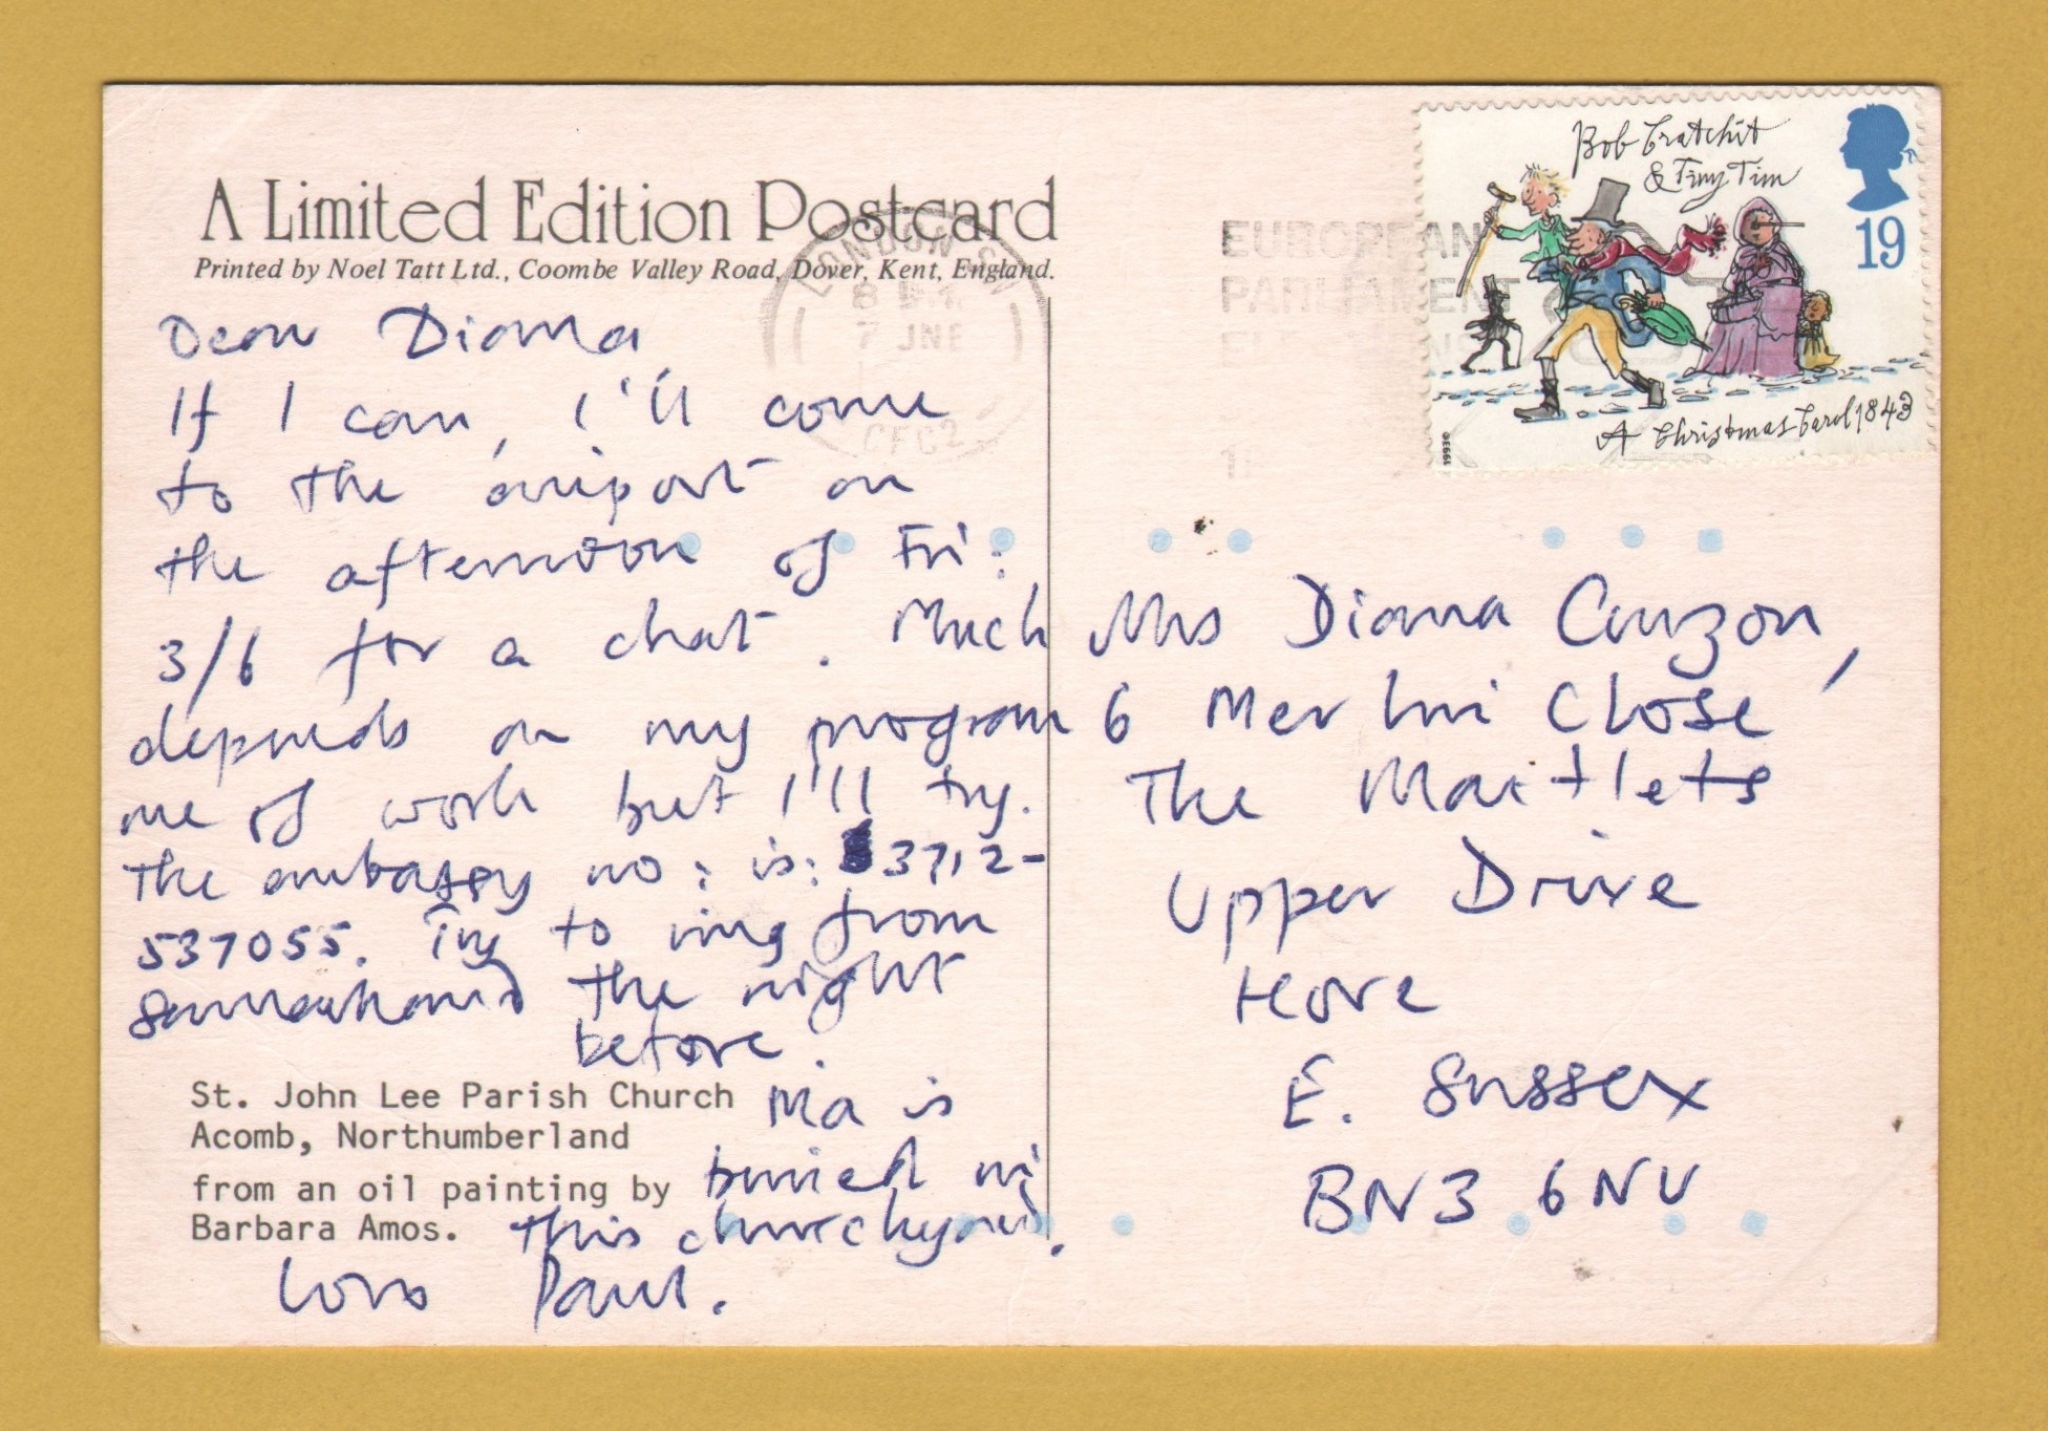 A Limited Edition Postcard
Printed by Noel Tatt Ltd., Coombe Valley Road, Dover, Kent, England.
Dear Diana,
If I can, I'll come
to the airport on
the afternoon of Fri:
3/6 for a chat. Much
depends on my program
me of work but I'll try.
The embassy no: is: 3712-
537055. Try to ring from
Samarkand the night
before.
Ma is
buried in
this churchyard.
Love Paul.
St. John Lee Parish Church
Acomb, Northumberland
from an oil painting by
Barbara Amos.
LONDON
8 PM
7 JNE
EUROPEAN
PARLIAMENT
Bob Cratchit
& Tiny Tim
19
A Christmas Carol 1843
Mrs Diana Curzon,
6 Merlin Close
The Martlets
Upper Drive
Hove
E. Sussex
BN3 6NU